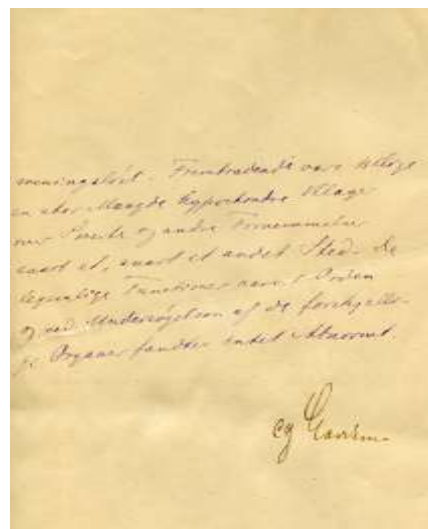 meningsløst. Fremtrædende vare
en stor Mængde hypochondre Klager
over Smerte og andre Fornemmelser
snart et, snart et andet Sted. De
legemlige Functioner vare i Orden
og ved Undersøgelsen af de forskjelli-
ge Organer fandtes intet Abnormt.